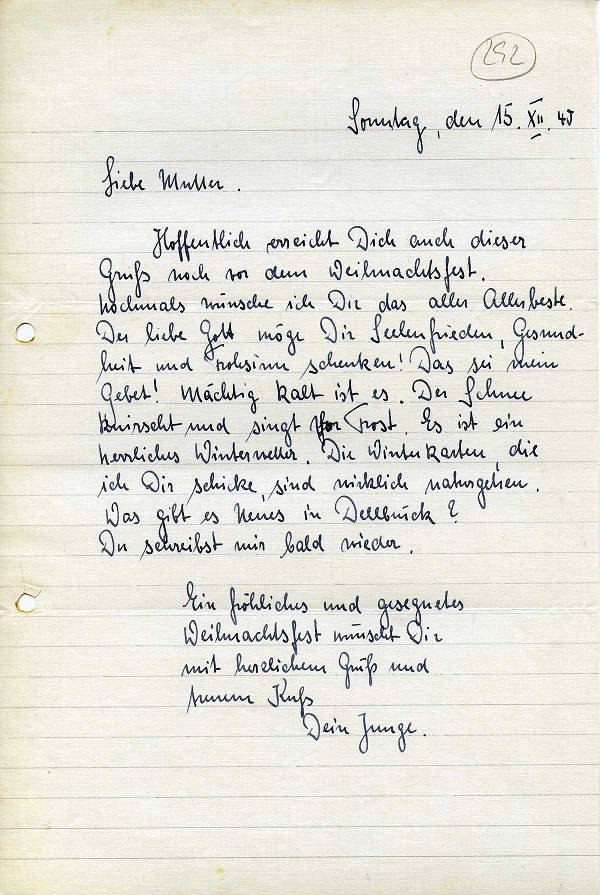 292
Sonntag, den 15. XII. 40
Liebe Mutter.
Hoffentlich erreicht Dich auch dieser
Gruß noch vor dem Weihnachtsfest.
Nochmals wünsche ich Dir das aller Allerbeste.
Der liebe Gott möge Dir Seelenfrieden, Gesund-
heit und Frohsinn schenken! Das sei mein
Gebet! Mächtig kalt ist es. Der Schnee
knirscht und singt vor Frost. Es ist ein
herrliches Winterwetter. Die Winterkarten, die
ich Dir schicke, sind wirklich naturgetreu.
Was gibt es Neues in Dellbrück?
Du schreibst mir bald wieder.
Ein fröhliches und gesegnetes
Weihnachtsfest wünscht Dir
mit herzlichem Gruß und
treuem Kuß
Dein Junge.